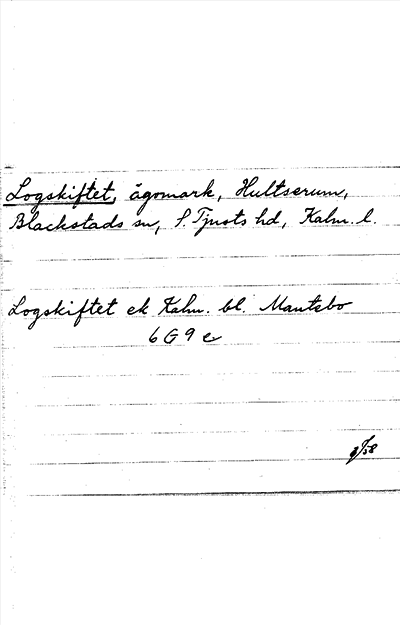 Logskiftet, ägomark, Hultserum,
Blackstads sn, S. Tjusts hd, Kalm. l.
Logskiftet ek Kalm. bl. Mantebo
6 G 9 e